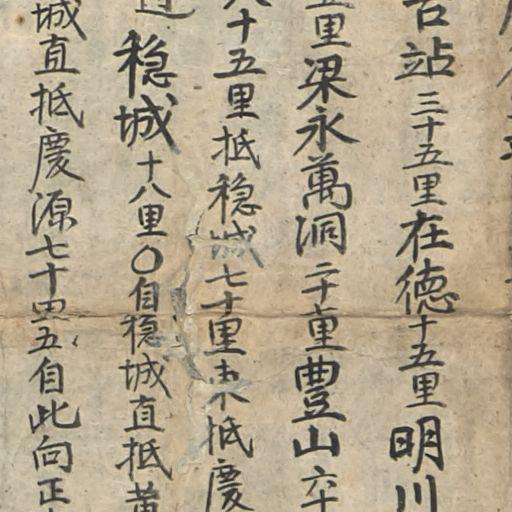 站三十五里在德十五里明川
五里梁永萬洞二十里豊山六十
十五里抵稳城七十里東抵慶
稳城十八里〇自稳城直抵黄
城直抵慶源七十里五自此向正